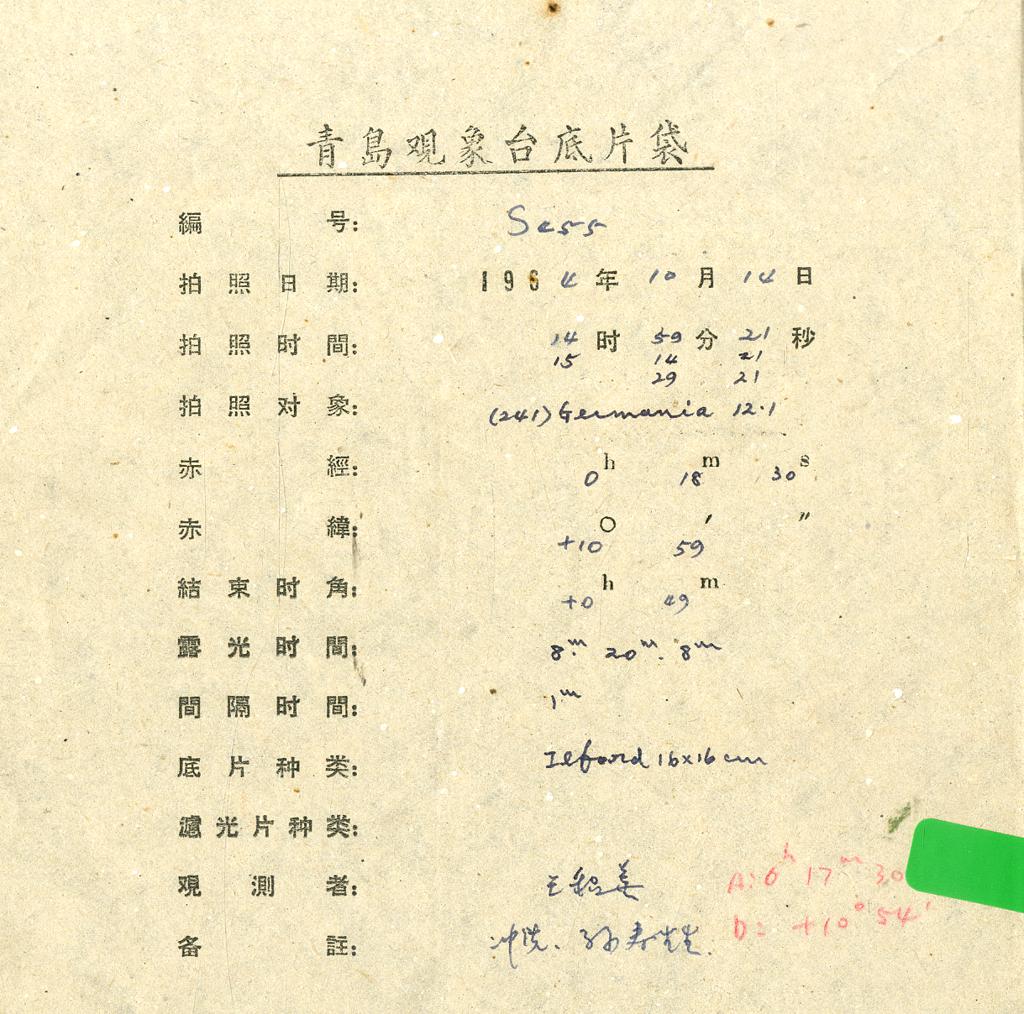 青島观象台底片袋
編号: Se55
拍照日期: 1964年10月14日
拍照时間: 14时59分21秒
15 14 21
29 21
拍照对象: (241) Germania 12.1
赤經: 0h 18m 30s
赤緯: +10° 59′ ″
結束时角: +0h 49m
露光时間: 8m. 20m. 8m
間隔时間: 1m
底片种类: Ilford 16x16cm
濾光片种类:
观測者: 王
A: 0h 17m 30
D: +10° 54′
备註: 冲洗、孙寿